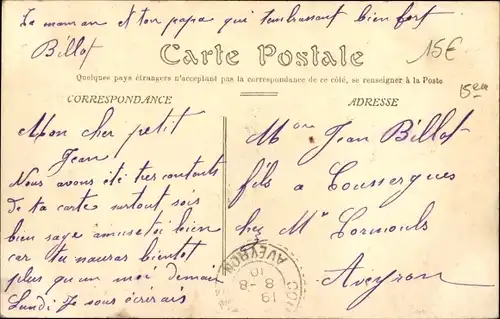 Ta maman et ton papa qui t'embrassent bien fort
Billot
Carte Postale
15€
Quelques pays étrangers n'acceptant pas la correspondance de ce côté, se renseigner à la Poste
CORRESPONDANCE
ADRESSE
Mon cher petit
Jean
Nous avons été tres contents
de ta carte surtout sois
bien sage amuse toi bien
car tu nauras bientot
plus qu'un moi demain
Lundi Je vous écrirais
Mon Jean Billot
fils a Coussergues
chez Mr
Aveyron
AVEYRON
8-8
10